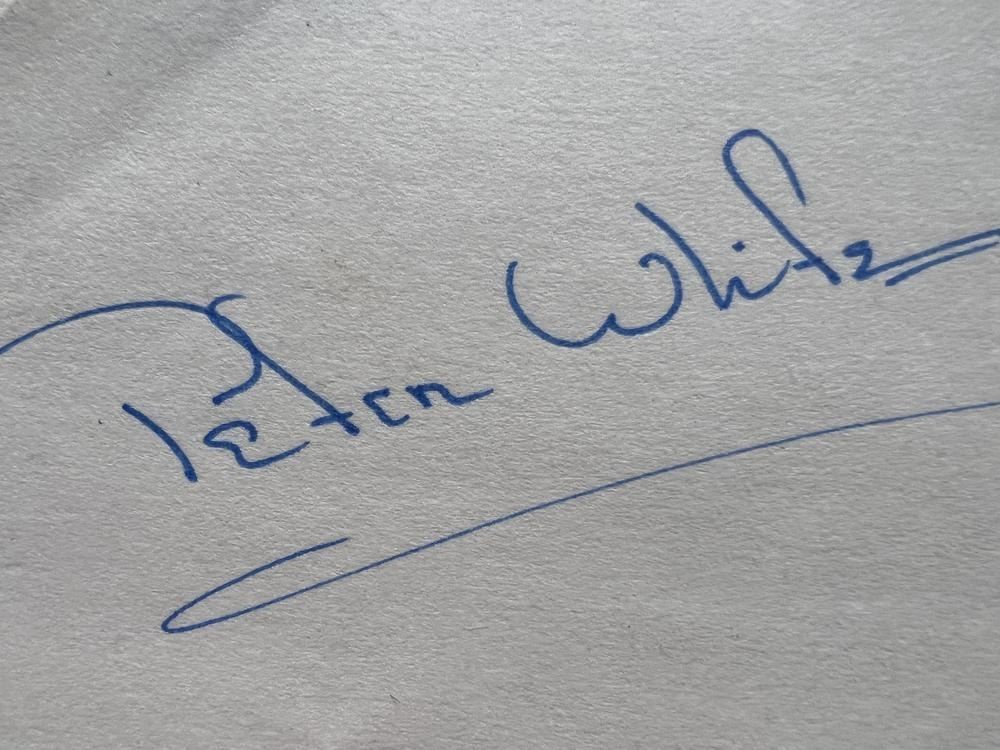 Peter White